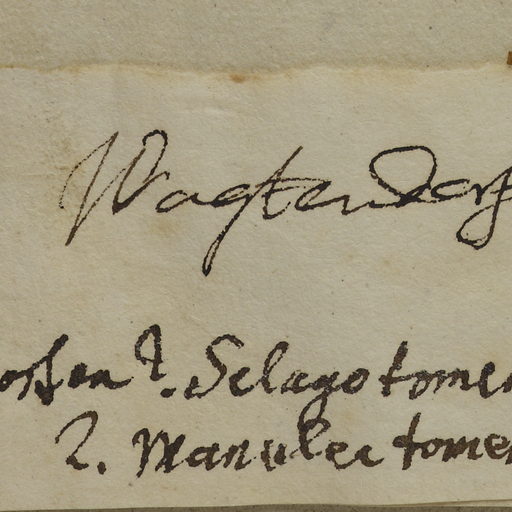 Wagtendorf
Selago tomen
2. Manulea tomen